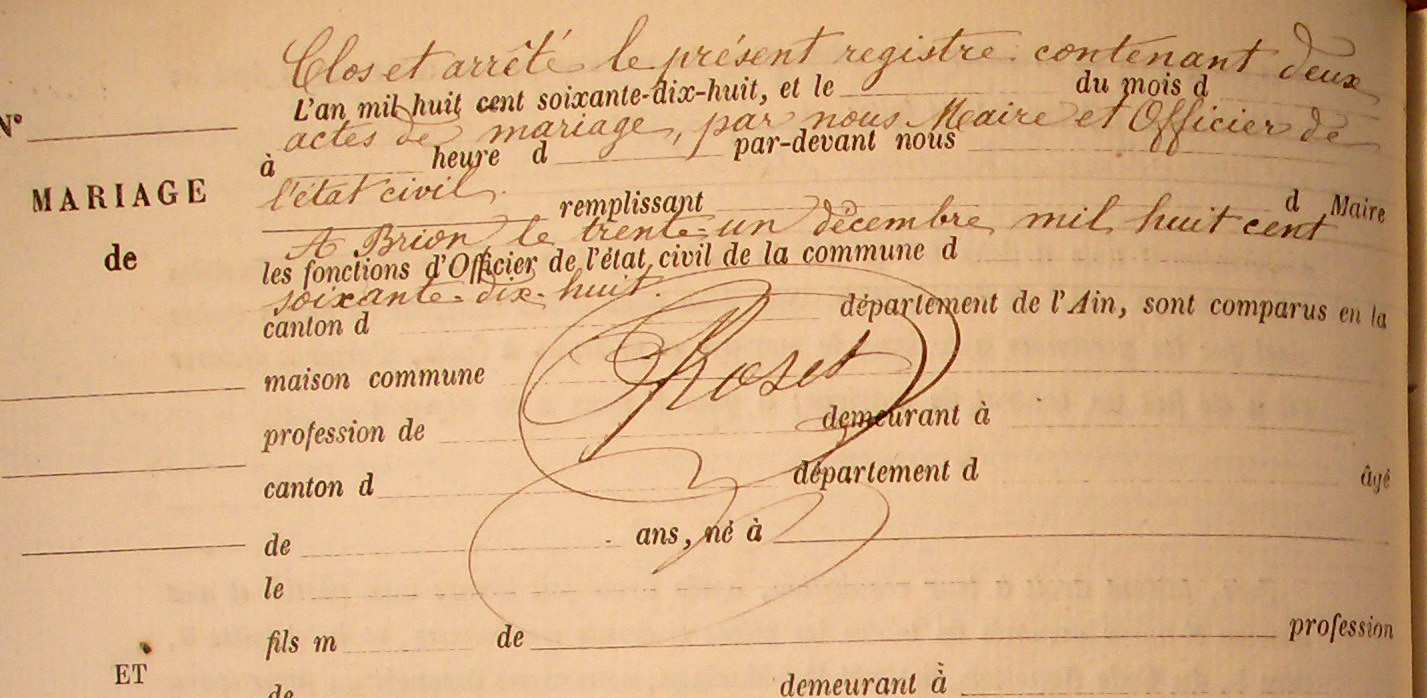 Clos et arrêté le présent registre contenant deux
L'an mil huit cent soixante-dix-huit, et le du mois d
N°
actes de mariage, par nous Maire et Officier de
à heure d par-devant nous
MARIAGE
l'état civil.
remplissant d Maire
A Brion le trente-un décembre mil huit cent
de
les fonctions d'Officier de l'état civil de la commune d
soixante-dix-huit.
canton d département de l'Ain, sont comparus en la
Roset
maison commune
profession de demeurant à
canton d département d âgé
de ans, né à
le
fils m de profession
ET
de demeurant à